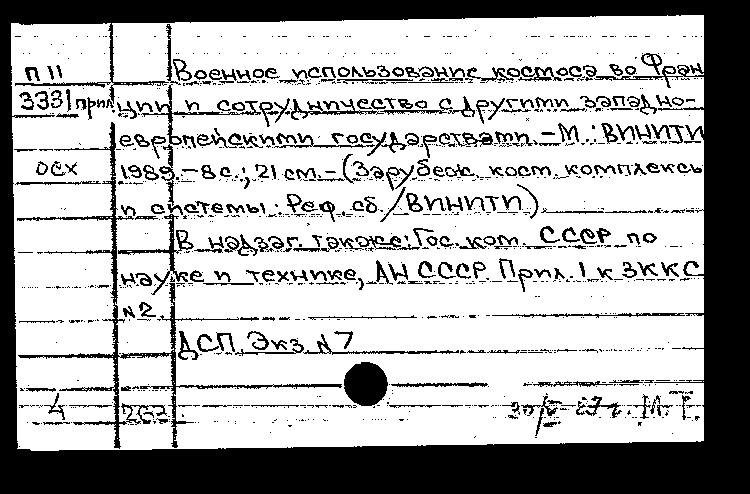 П 11 Военное использование космоса во Фран
3331 прил ции и сотрудничество с другими западно-
европейскими государствами. – М.: ВИНИТИ
ОСХ 1989. – 8 с.; 21 см. – (Зарубеж. косм. комплексы
и системы: Реф. сб. / ВИНИТИ).
В надзаг. также: Гос. ком. СССР по
науке и технике, АН СССР. Прил. 1 к ЗККС
№ 2.
ДСП. Экз. № 7
4 263. М. Т.